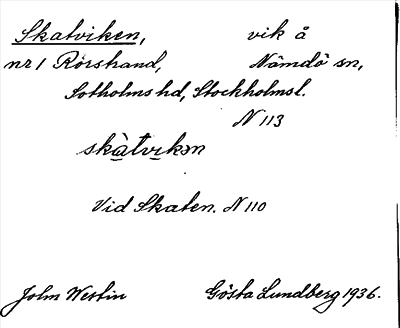 Skatviken, vik å
nr 1 Rörstrand, Nämdö sn,
Sotholms hd, Stockholms l.
N 113
skàtvikən
Vid Skaten. N 110
John Westin Gösta Lundberg 1936.